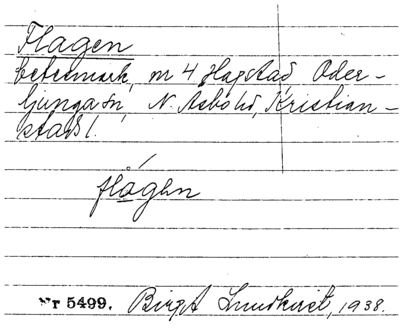 Flagen
betesmark, m 4 Hagstad Oder-
ljunga sn, N. Åsbo hd, Kristian-
stads l.
flågen
Nr 5499. Birgit Lundkvist, 1938.